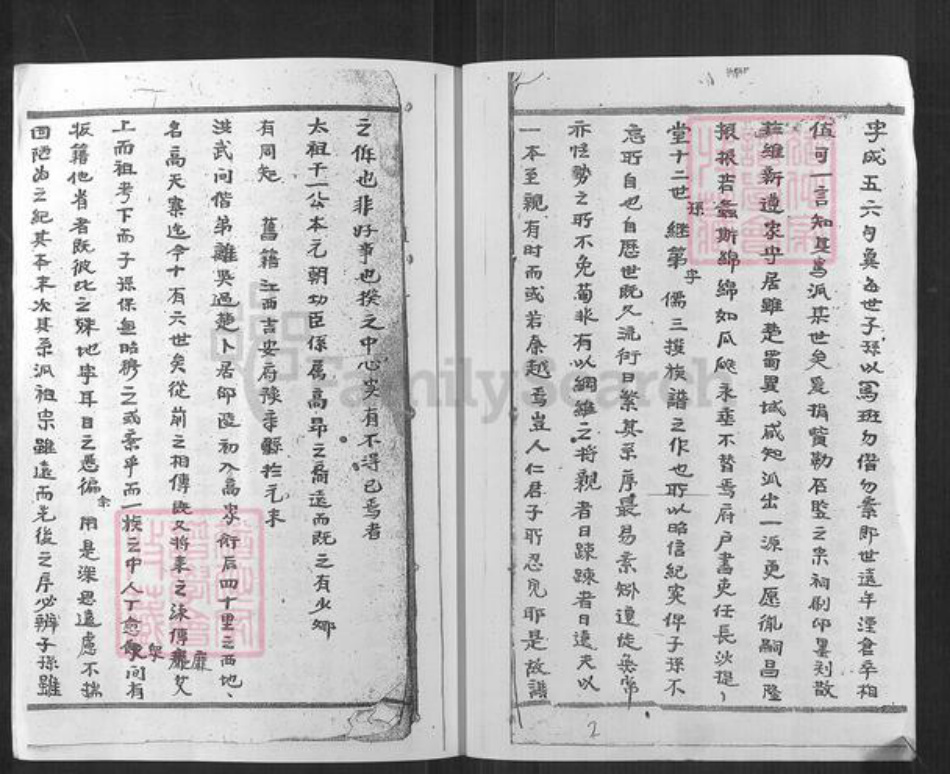 字成五六句奐为世子孫以寫班勿僭勿紊即世遠年湮倉卒相
值可一言知其為派某世矣爰捐貲勒石竖之宗祠刷印畧刻散
維新遵家字居雖楚蜀異域咸知派出一源更愿胤嗣昌隆
振振若螽斯綿綿如瓜瓞永垂不替焉府戶書吏任長沙提
堂十二世孫継第字儒三撰族譜之作也所以昭信紀实俾子孫不
忘所自也自歷世既久流衍日繁其系序最易紊矧遷徙無常
亦性勢之所不免苟非有以綱維之將親者日疎疎者日遠夫以
一本至親有时而或若秦越焉豈人仁君子所忍见耶是故譜
之作也非好事也揆之中心实有不得已焉者
太祖千一公本元朝功臣係属高昂之裔迄而既之有少鄉
有周知 舊籍江西吉安府豫章縣於元末
洪武间偕弟離吳過楚卜居邵陵初入高字衍后四十里之西地、
名高天寨迄今十有六世矣從前之相傳既久將来之誄傳靡艾靡
上而祖考下而子孫保無昭穆之或紊乎而一族之中人丁愈衆间有
板籍他省者既彼此之殊地寧耳目之悉徧余用是深思遠慮不揣
固陋为之紀其本末次其系派祖宗雖遠而先後之序必辨子孫雖
2
FamilySearch